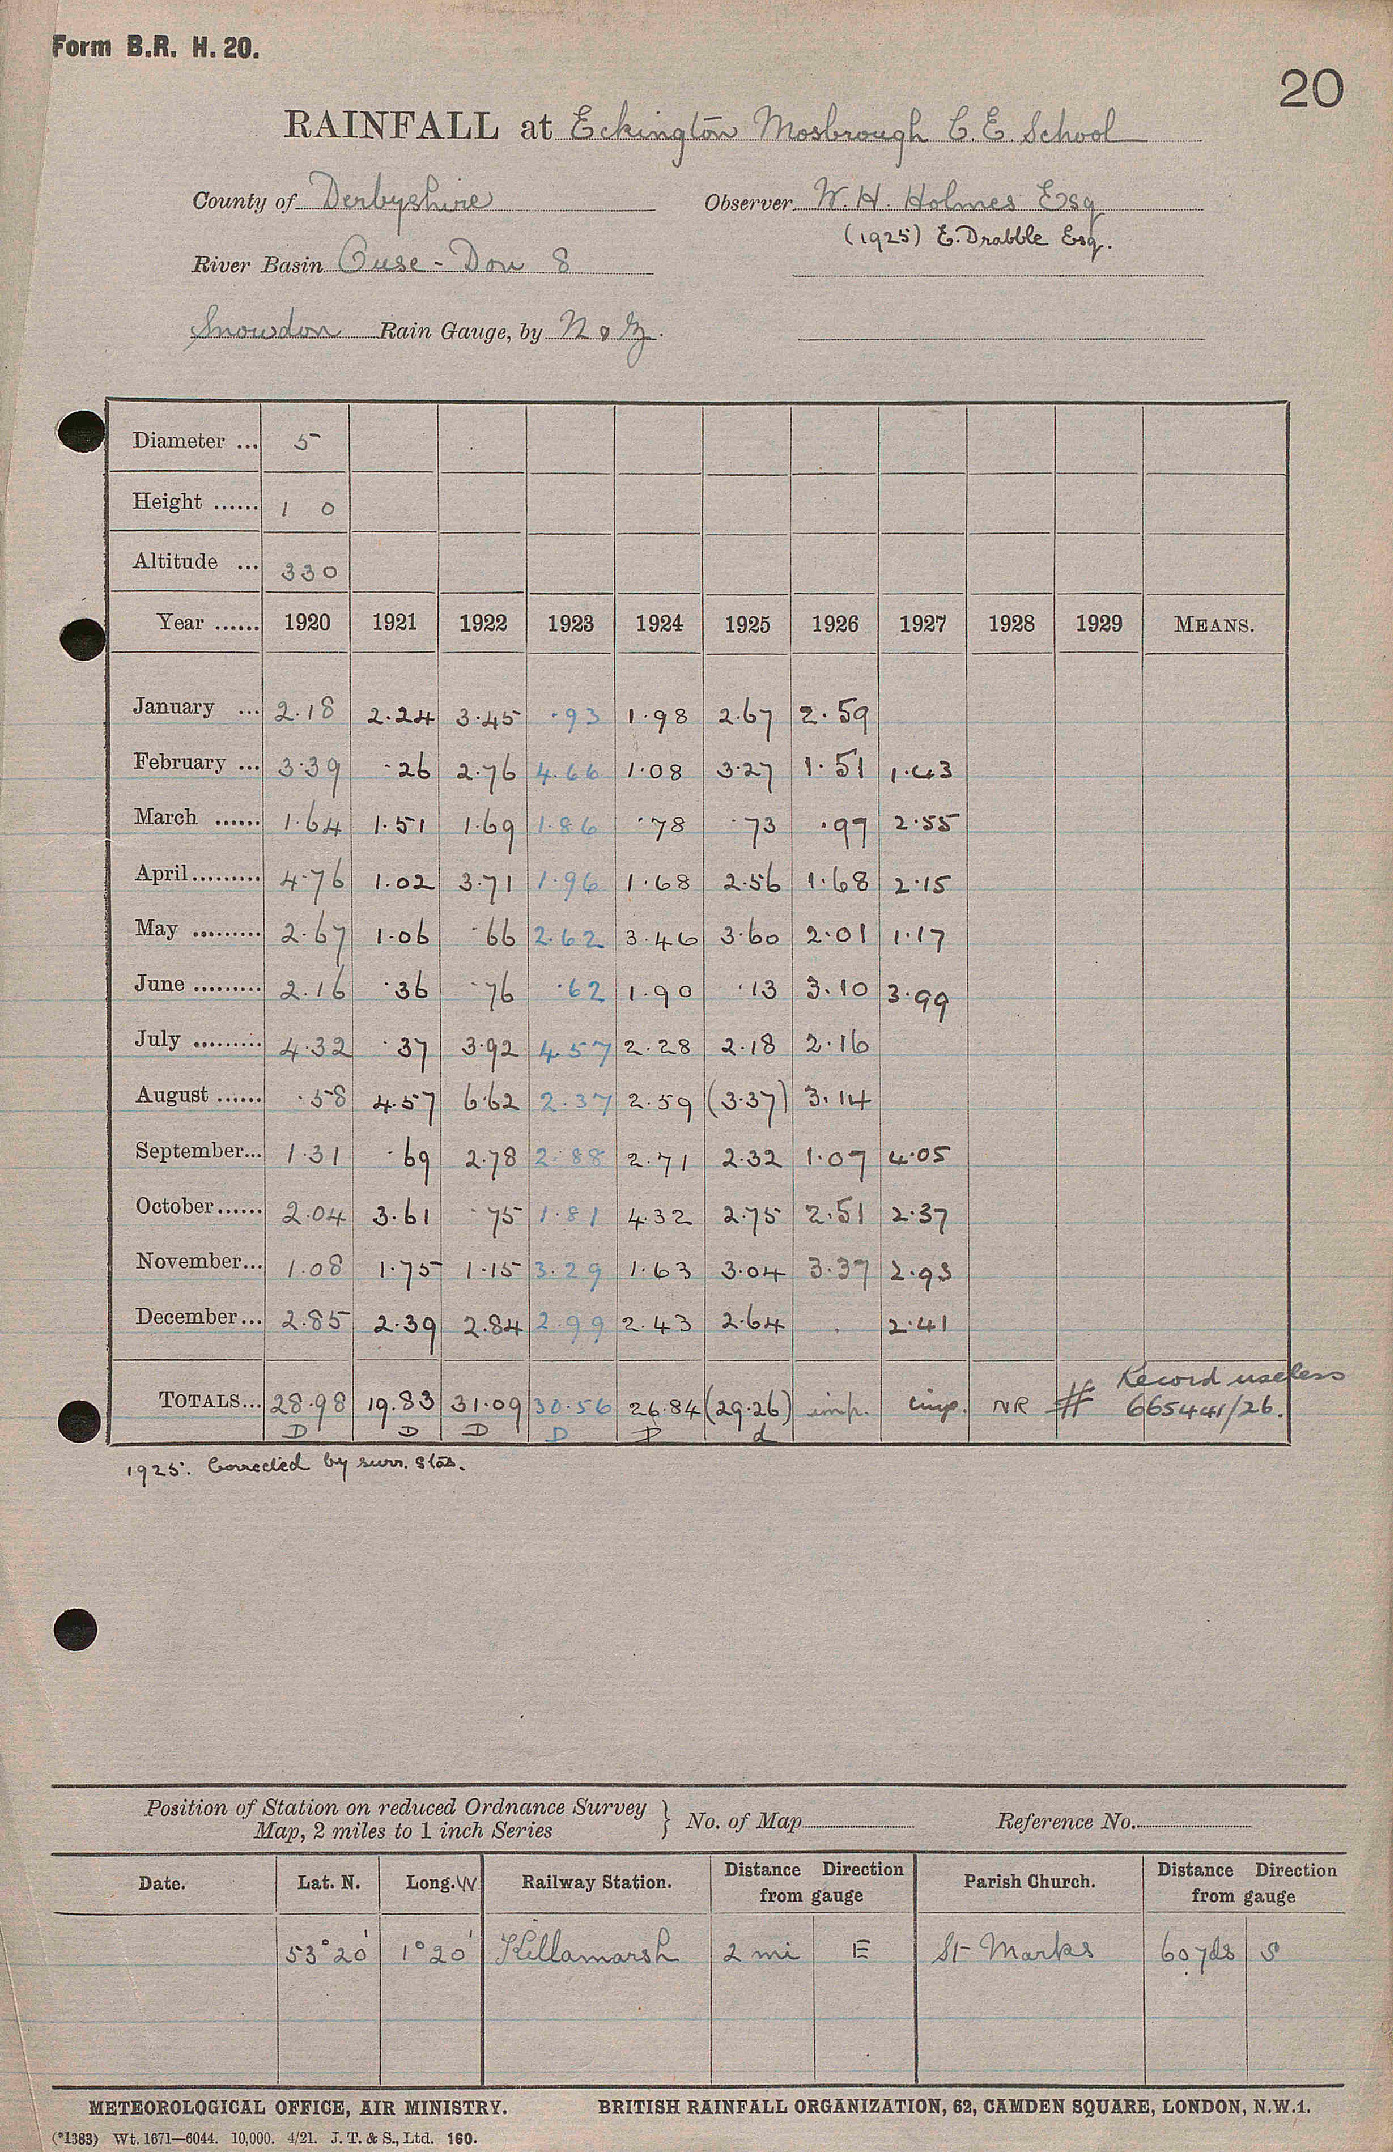 Form B.R. H. 20.
20
RAINFALL at Eckington Mosbrough C.E. School
County of Derbyshire Observer W. H. Holmes Esq
(1925) E. Drabble Esq.
River Basin Ouse - Don 8
Snowdon Rain Gauge, by N & Z.
Diameter ... 5
Height ...... 1 0
Altitude ... 330
Year ...... 1920 1921 1922 1923 1924 1925 1926 1927 1928 1929 MEANS.
January ... 2.18 2.24 3.45 .93 1.98 2.67 2.59
February ... 3.39 .26 2.76 4.66 1.08 3.27 1.51 1.43
March ...... 1.64 1.51 1.69 1.86 .78 .73 .97 2.55
April ......... 4.76 1.02 3.71 1.96 1.68 2.56 1.68 2.15
May ......... 2.67 1.06 .66 2.62 3.46 3.60 2.01 1.17
June ......... 2.16 .36 .76 .62 1.90 .13 3.10 3.99
July ......... 4.32 .37 3.92 4.57 2.28 2.18 2.16
August ...... .58 4.57 6.62 2.37 2.59 (3.37) 3.14
September... 1.31 .69 2.78 2.88 2.71 2.32 1.07 4.05
October ...... 2.04 3.61 .75 1.81 4.32 2.75 2.51 2.37
November... 1.08 1.75 1.15 3.29 1.63 3.04 3.37 2.93
December ... 2.85 2.39 2.84 2.99 2.43 2.64 . 2.41
Record useless
TOTALS... 28.98 19.83 31.09 30.56 26.84 (29.26) imp. imp. NR # 665441/26.
D D D D D d
1925. Corrected by surr. stas.
Position of Station on reduced Ordnance Survey
Map, 2 miles to 1 inch Series } No. of Map Reference No.
Date. Lat. N. Long. W Railway Station. Distance Direction from gauge Parish Church. Distance Direction from gauge
53°20' 1°20' Killamarsh 2 mi E St Marks 60 yds S
METEOROLOGICAL OFFICE, AIR MINISTRY. BRITISH RAINFALL ORGANIZATION, 62, CAMDEN SQUARE, LONDON, N.W.1.
(*1383) Wt. 1671—6044. 10,000. 4/21. J. T. & S., Ltd. 160.